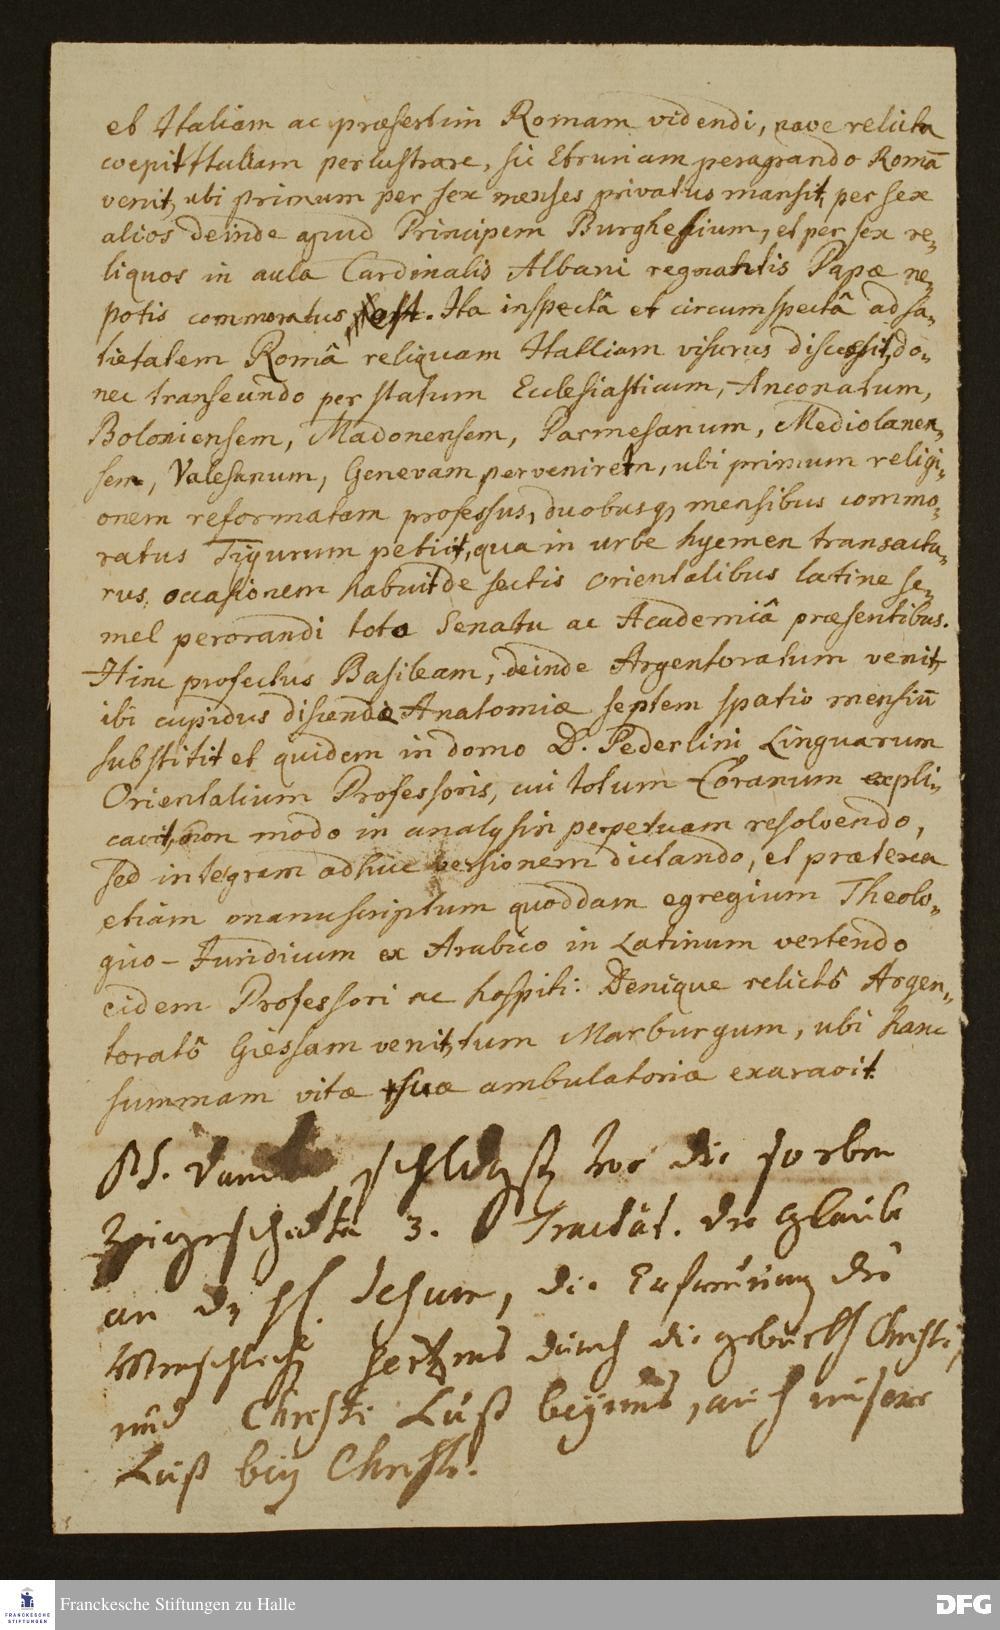 et Italiam ac præsertim Romam videndi, nave relicta
coepit Italiam perlustrare, sic Etruriam peragrando Romā
venit, ubi primum per sex menses privatus mansit, per sex
alios deinde apud Principem Burghesium, et per sex re„
liquos in aula Cardinalis Albani regnantis Papæ ne„
potis commoratus est. Ita inspectâ et circumspectâ ad sa„
tietatem Româ reliquam Italiam visurus discessit, do„
nec transeundo per statum Ecclesiasticum, Anconatum,
Boloniensem, Madonensem, Parmesanum, Mediolanen„
sem, Valesanum, Genevam perveniret, ubi primum religi„
onem reformatam professus, duobusq, mensibus commo„
ratus Tigurum petiit, qua in urbe hyemen transactu„
rus, occasionem habuit de sectis orientalibus latine se„
mel perorandi toto Senatu ac Academiâ præsentibus.
Hinc profectus Basileam, deinde Argentoratum venit,
ibi cupidus discendæ Anatomiæ septem spatio mensiū
substitit et quidem in domo D. Pederlini Linguarum
Orientalium Professoris, cui totum Coranum expli„
cavit, non modo in analysin perpetuam resolvendo,
sed integram adhuc versionem dictando, et præterea
etiam manuscriptum quoddam egregium Theolo„
gico-Juridicum ex Arabico in Latinum vertendo
eidem Professori ac hospiti. Denique relictô Argen„
toratô Giessam venit, tum Marburgum, ubi hanc
summam vitæ suæ ambulatoriæ exaravit.
PS. schlägst vor die so eben
3. Tractät. der Glaube
an dn hl. Jesum, die Erfreuung des
Menschlichen Hertzens durch die geburth Christi,
und Christi Lust bey uns, auch unsere
Lust bey Christo.
Franckesche Stiftungen zu Halle
FRANCKESCHE
STIFTUNGEN
DFG